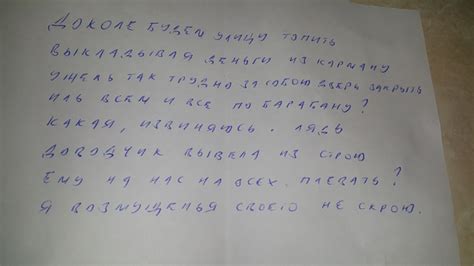 ДОКОЛЕ БУДЕМ УЛИЦУ ТОПИТЬ
ВЫКЛАДЫВАЯ ДЕНЬГИ ИЗ КАРМАНУ
УЖЕЛЬ ТАК ТРУДНО ЗА СОБОЮ ДВЕРЬ ЗАКРЫТЬ
ИЛЬ ВСЕМ И ВСЕ ПО БАРАБАНУ?
КАКАЯ, ИЗВИНЯЮСЬ. ЛЯДЬ
ДОВОДЧИК ВЫВЕЛА ИЗ СТРОЮ
ЕМУ НА НАС НА ВСЕХ. ПЛЕВАТЬ?
Я ВОЗМУЩЕНЬЯ СВОЕГО НЕ СКРОЮ.